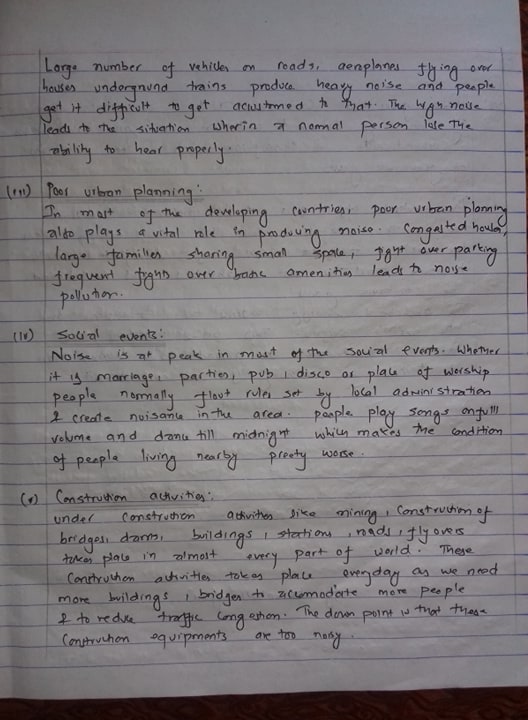 Large number of vehicles on roads, aeroplanes flying over
houses undergrund trains produce heavy noise and people
get it difficult to get acustomed to that. The high noise
leads to the situation wherin a normal person lose the
ability to hear properly.
(iii) Poor urban planning:
In most of the developing countries, poor urban planning
also plays a vital role in producing noise. Congested houses,
large families sharing small space, fight over parking
frequent fights over basic amenities leads to noise
pollution.
(iv) Social events:
Noise is at peak in most of the social events. Whether
it is marriage, parties, pub, disco or place of worship
people normally flout rules set by local administration
& create noisance in the area. people play songs on full
volume and dance till midnight which makes the condition
of people living nearby preety worse.
(v) Construction activities:
under construction activities like mining, Construction of
bridges, dams, buildings, stations, roads, flyovers
takes place in almost every part of world. These
Construction activities takes place everyday as we need
more buildings, bridges to accomodate more people
& to reduce traffic congestion. The down point is that these
Construction equipments are too noisy.